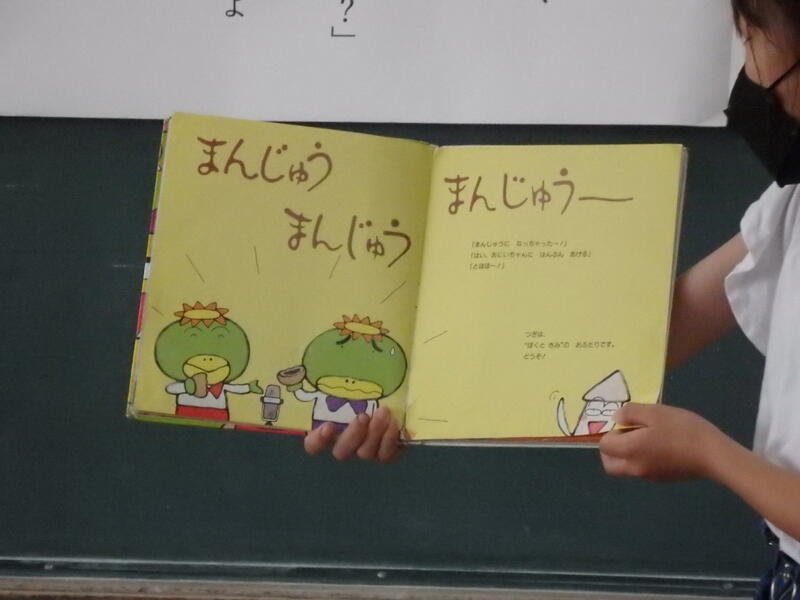 よ
？」
まんじゅう
まんじゅう
まんじゅうー
「まんじゅうに なっちゃったー！」
「はい、おにいちゃんに はんぶん あげる」
「とほほー！」
つぎは、
"ぼくと きみ"の おふたりです。
どうぞ！